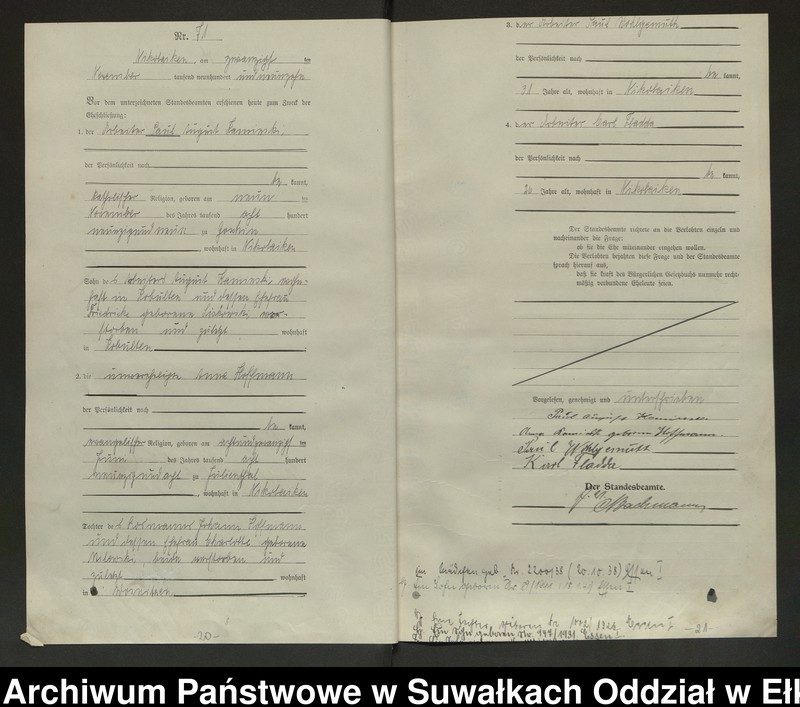 Nr. 71
Nikolaiken, am zwanzigsten
November tausend neunhundert undneunzehn
Vor dem unterzeichneten Standesbeamten erschienen heute zum Zweck der
Eheschließung:
1. der Arbeiter Paul August
der Persönlichkeit nach
be kannt,
katholischer Religion, geboren am neun ten
November des Jahres tausend acht hundert
neunzig und neun zu
, wohnhaft in Nikolaiken
Sohn des Arbeiters August wohn-
haft in Kobulten und dessen Ehefrau
Friedricke geborene ver-
storben und zuletzt wohnhaft
in Kobulten
2. die unverehelichte Anna Hoffmann
der Persönlichkeit nach
be kannt,
evangelischer Religion, geboren am achtundzwanzigsten
Juni des Jahres tausend acht hundert
neunzig und acht zu Julienthal
, wohnhaft in Nikolaiken
Tochter des Johann Hoffmann
und dessen Ehefrau Charlotte geborene
beide verstorben und
zuletzt wohnhaft
in
-20-
3. der Arbeiter Paul Wohlgemuth
der Persönlichkeit nach
be kannt,
31 Jahre alt, wohnhaft in Nikolaiken
4. der Arbeiter Karl Fladda
der Persönlichkeit nach
be kannt,
20 Jahre alt, wohnhaft in Nikolaiken
Der Standesbeamte richtete an die Verlobten einzeln und
nacheinander die Frage:
ob sie die Ehe miteinander eingehen wollen.
Die Verlobten bejahten diese Frage und der Standesbeamte
sprach hierauf aus,
daß sie kraft des Bürgerlichen Gesetzbuchs nunmehr recht-
mäßig verbundene Eheleute seien.
Vorgelesen, genehmigt und unterschrieben
Paul August
Anna geborene Hoffmann
Paul Wohlgemuth
Karl Fladda
Der Standesbeamte.
Ein Mädchen geb. Nr. 2200/38 (20.10.38) Essen I
Ein Sohn geboren Nr. Essen I
geboren Nr. Essen I
Ein Sohn geboren Nr. 197/1931 Essen I
-21-
Archiwum Państwowe w Suwałkach Oddział w Ełk